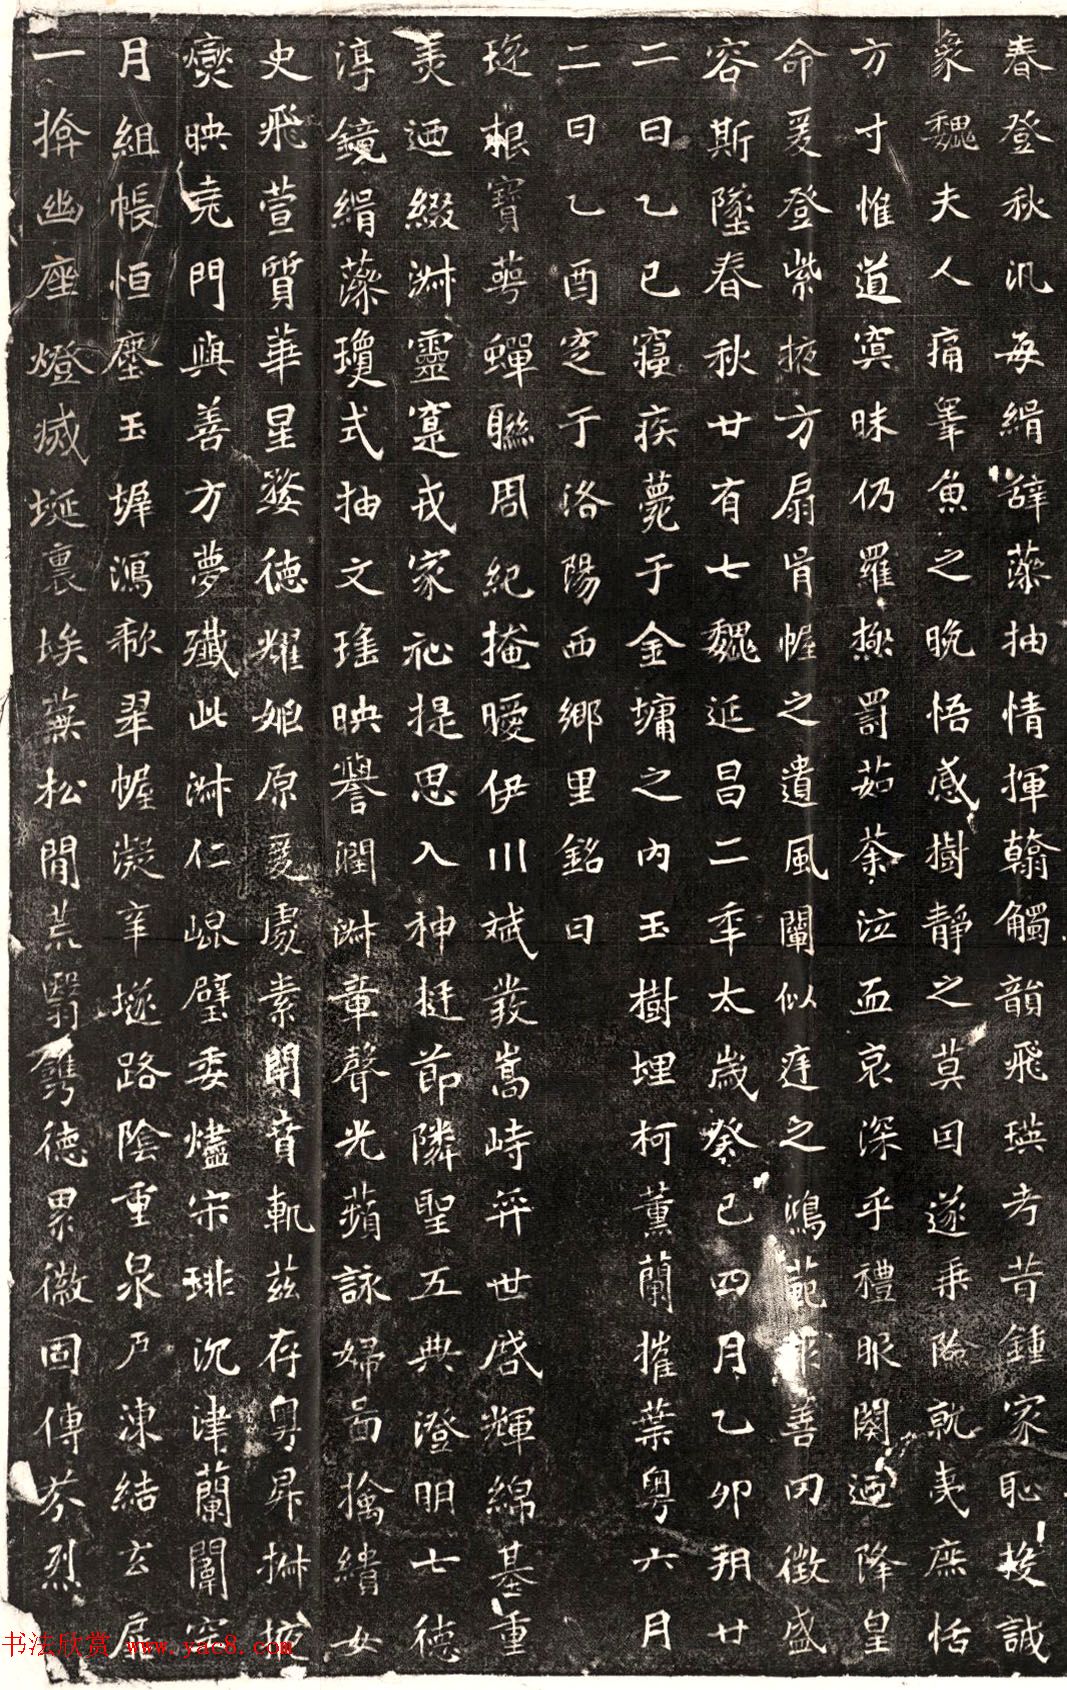 春登秋汎每緝辭藻抽情揮翰觸韻飛瑛考昔鍾家恥捘誠
象魏夫人痛睾魚之晩悟感樹靜之莫囙遂乘險就夷庶恬
方寸惟道冥昧仍羅極罰茹荼泣血哀深乎禮服闋迺降皇
命爰登紫掖方扇胥幄之遺風闡似庭之鴻範善㓁徵盛
容斯墜春秋廿有七魏延昌二年太歲癸已四月乙卯朔廿
二日乙已寢疾薨于金墉之內玉樹埋柯薰蘭摧葉粵六月
二日乙酉窆于洛陽西鄉里銘曰
琁根寶萼蟬聯周紀掩曖伊川斌發嵩峙弈世啓輝綿基重
美迺綴淋靈寔戎家祉提思入神挺節隣聖五典澄明七德
淳鏡緝藻瓊式抽文瑤映譽潤淋章聲光蘋詠婦啚擒繢女
史飛萱質華星婺德耀姬原爰處素閈賁軌茲存粵昇掖
爕映堯門與善方夢殲此淋仁崐璧委燼宋琲沉津蘭闈
月組帳恒塵玉墀瀉欷翠幄凝辛遂路陰重泉戶凍結玄扃
一揜幽座燈㓕埏裏埃蕪松閒荒翳鐫德累徽固傳芬烈
书法欣赏 www.yac8.com